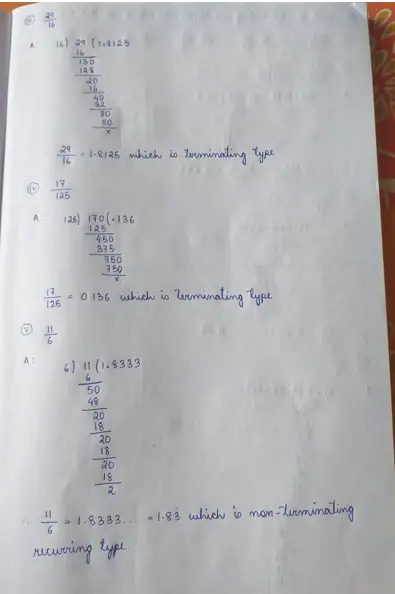 (iii) 29/16
A: 16) 29 (1.8125
16
130
128
20
16
40
32
80
80
x
∴ 29/16 = 1.8125 which is terminating type
(iv) 17/125
A: 125) 170 (.136
125
450
375
750
750
x
17/125 = 0.136 which is terminating type
(v) 11/6
A: 6) 11 (1.8333
6
50
48
20
18
20
18
20
18
2
∴ 11/6 = 1.8333.... = 1.83̇ which is non-terminating
recurring type.